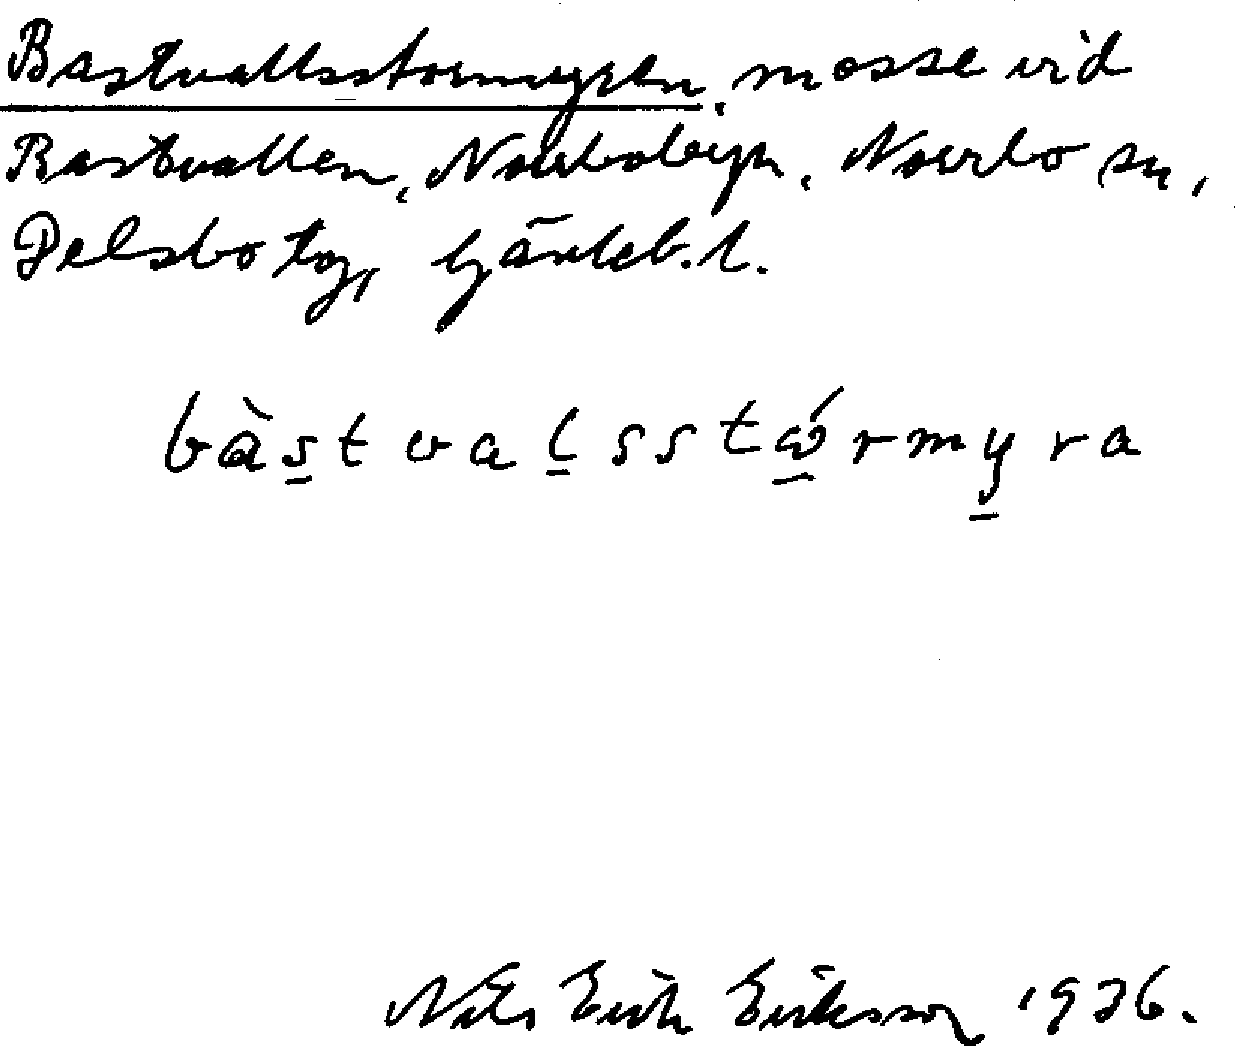 Bastvallsstormyren, mosse vid
Bastvallen, Norrbobyn, Norrbo sn,
Delsbo tg, Gävleb. l.
bàs̲tval̲sstώ̲rmy̲ra
Nils Erik Eriksson 1936.